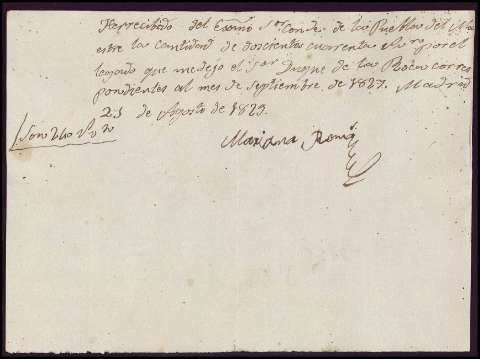 He recibido del Exmo Sor Conde de la Puebla del Ma
estre la cantidad de doscientos cuarenta Rs vn por el
legado que me dejo el Sor Duque de la Roca corres
pondientes al mes de Septiembre de 1827. Madrid
25 de Agosto de 1829.
Son 240 Rs vn
Mariana Roman